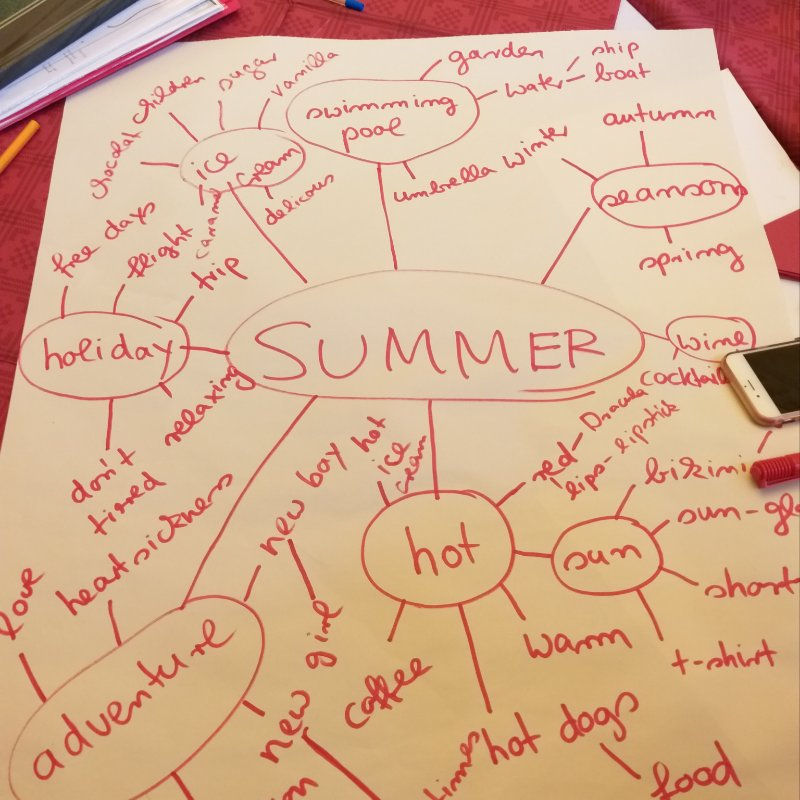 garden
ship
water
boat
sugar
vanilla
children
chocolat
swimming
pool
ice
cream
caramel
delicous
umbrella
winter
autumn
seansons
spring
free days
flight
trip
holiday
relaxing
don't
tired
SUMMER
wine
cocktail
red - Dracula
lips - lipstick
new boy hot
ice
cream
bikini
sun
hot
warm
t-shirt
love
heartsickness
adventure
new girl
coffee
hot dogs
food